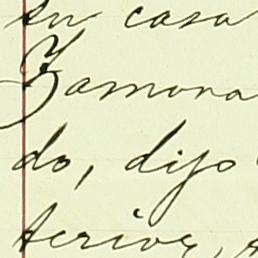 su casa
Zamora
do, dijo
terior,